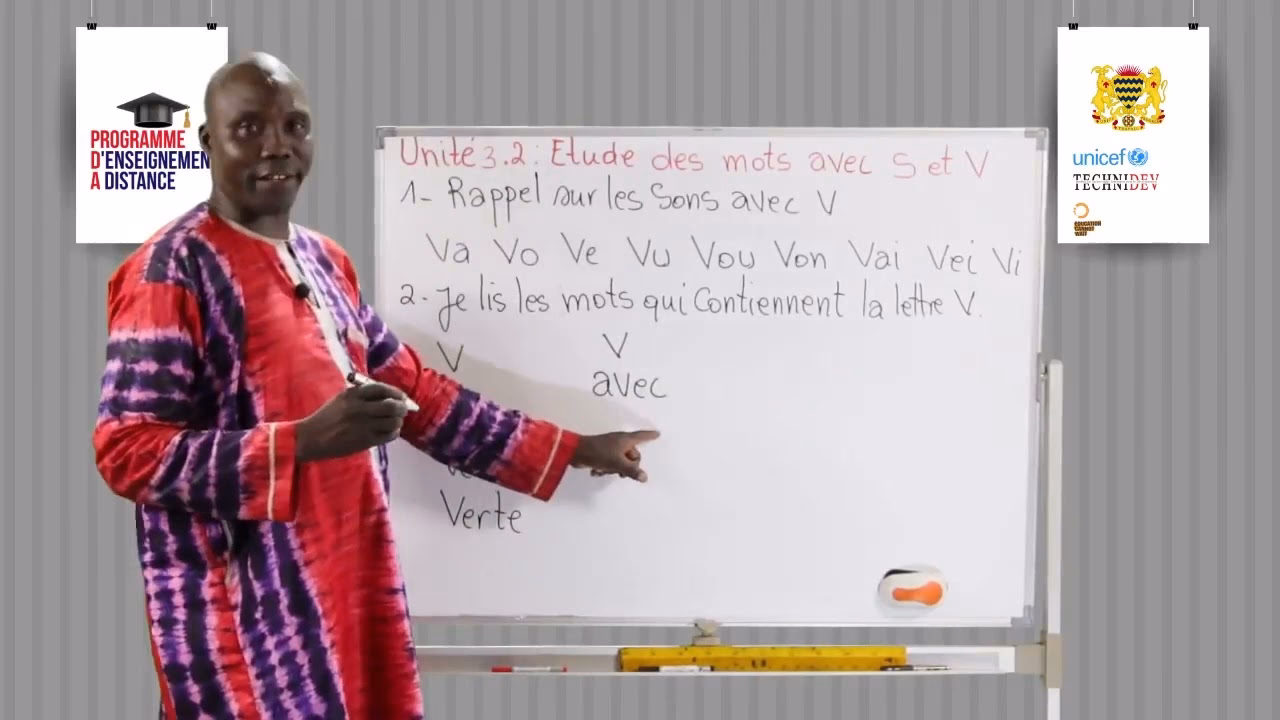 PROGRAMME
D'ENSEIGNEMEN
A DISTANCE
Unité 3.2 : Etude des mots avec S et V
1- Rappel sur les Sons avec V
Va Vo Ve Vu Vou Von Vai Vei Vi
2- Je lis les mots qui Contiennent la lettre V.
V V
avec
Verte
unicef
TECHNIDEV
EDUCATION
CANNOT
WAIT